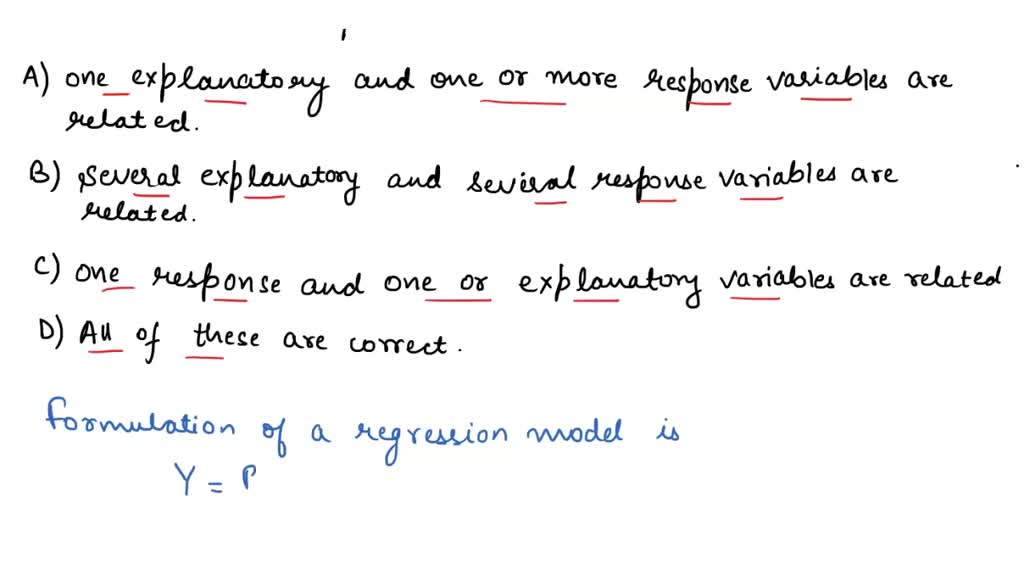 A) one explanatory and one or more response variables are
related.
B) several explanatory and several response variables are
related.
C) one response and one or explanatory variables are related
D) All of these are correct.
formulation of a regression model is
Y = P